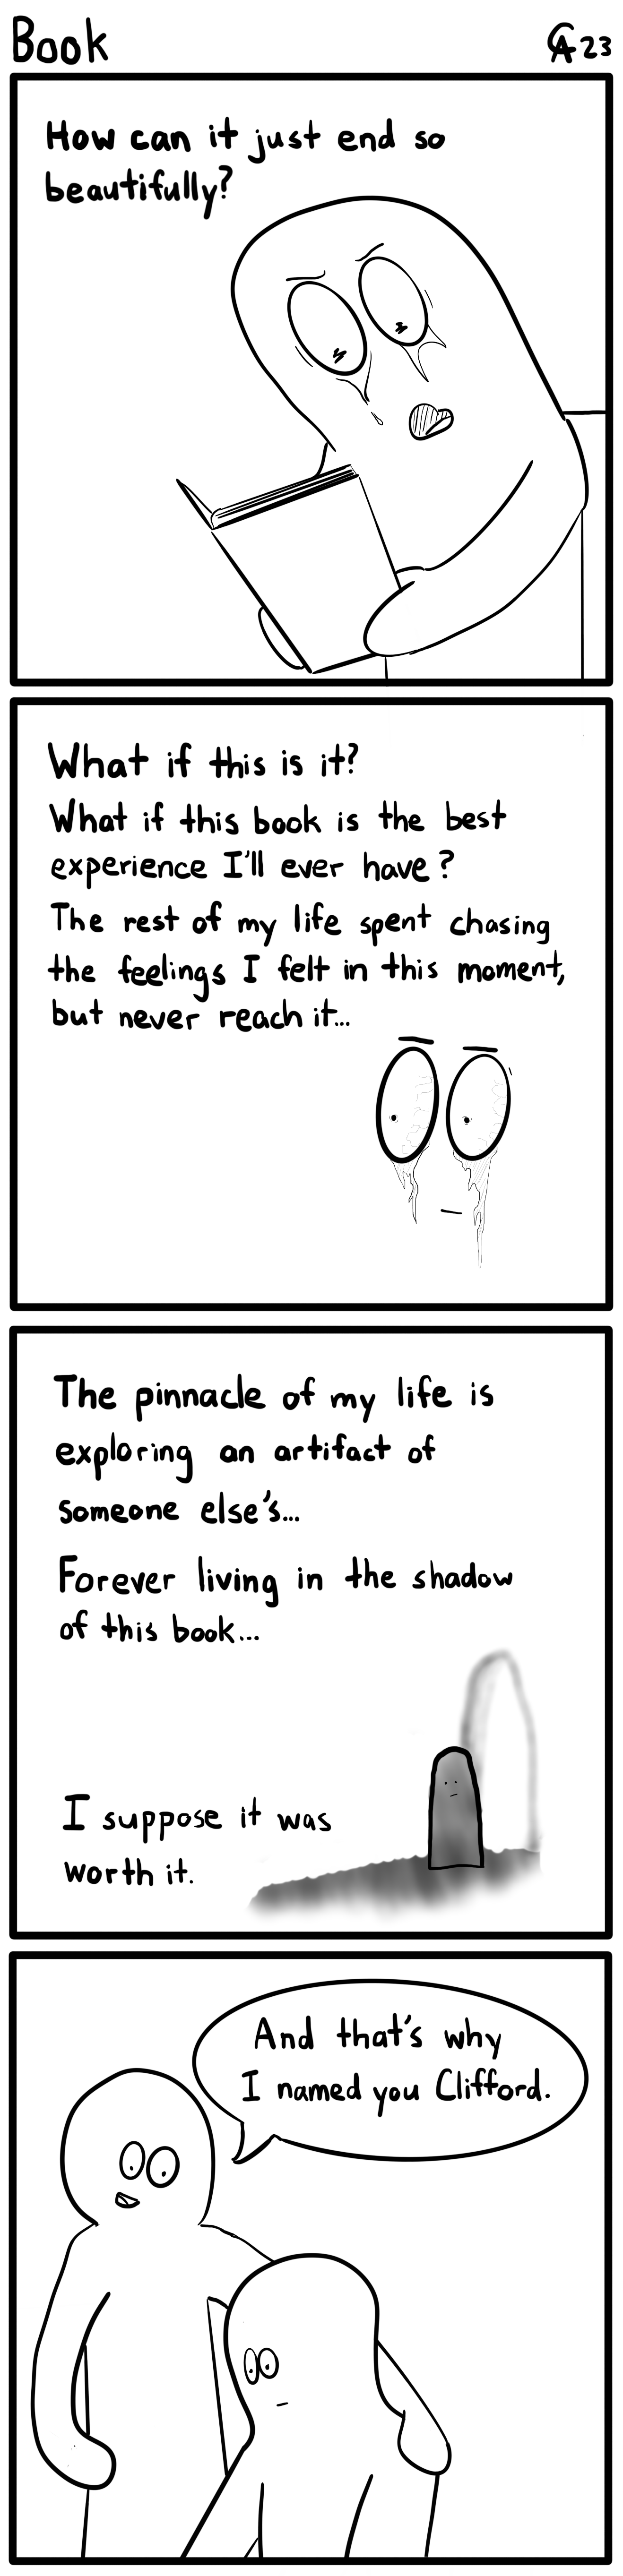 Book
CA 23
How can it just end so
beautifully?
What if this is it?
What if this book is the best
experience I'll ever have?
The rest of my life spent chasing
the feelings I felt in this moment,
but never reach it...
The pinnacle of my life is
exploring an artifact of
someone else's...
Forever living in the shadow
of this book...
I suppose it was
worth it.
And that's why
I named you Clifford.